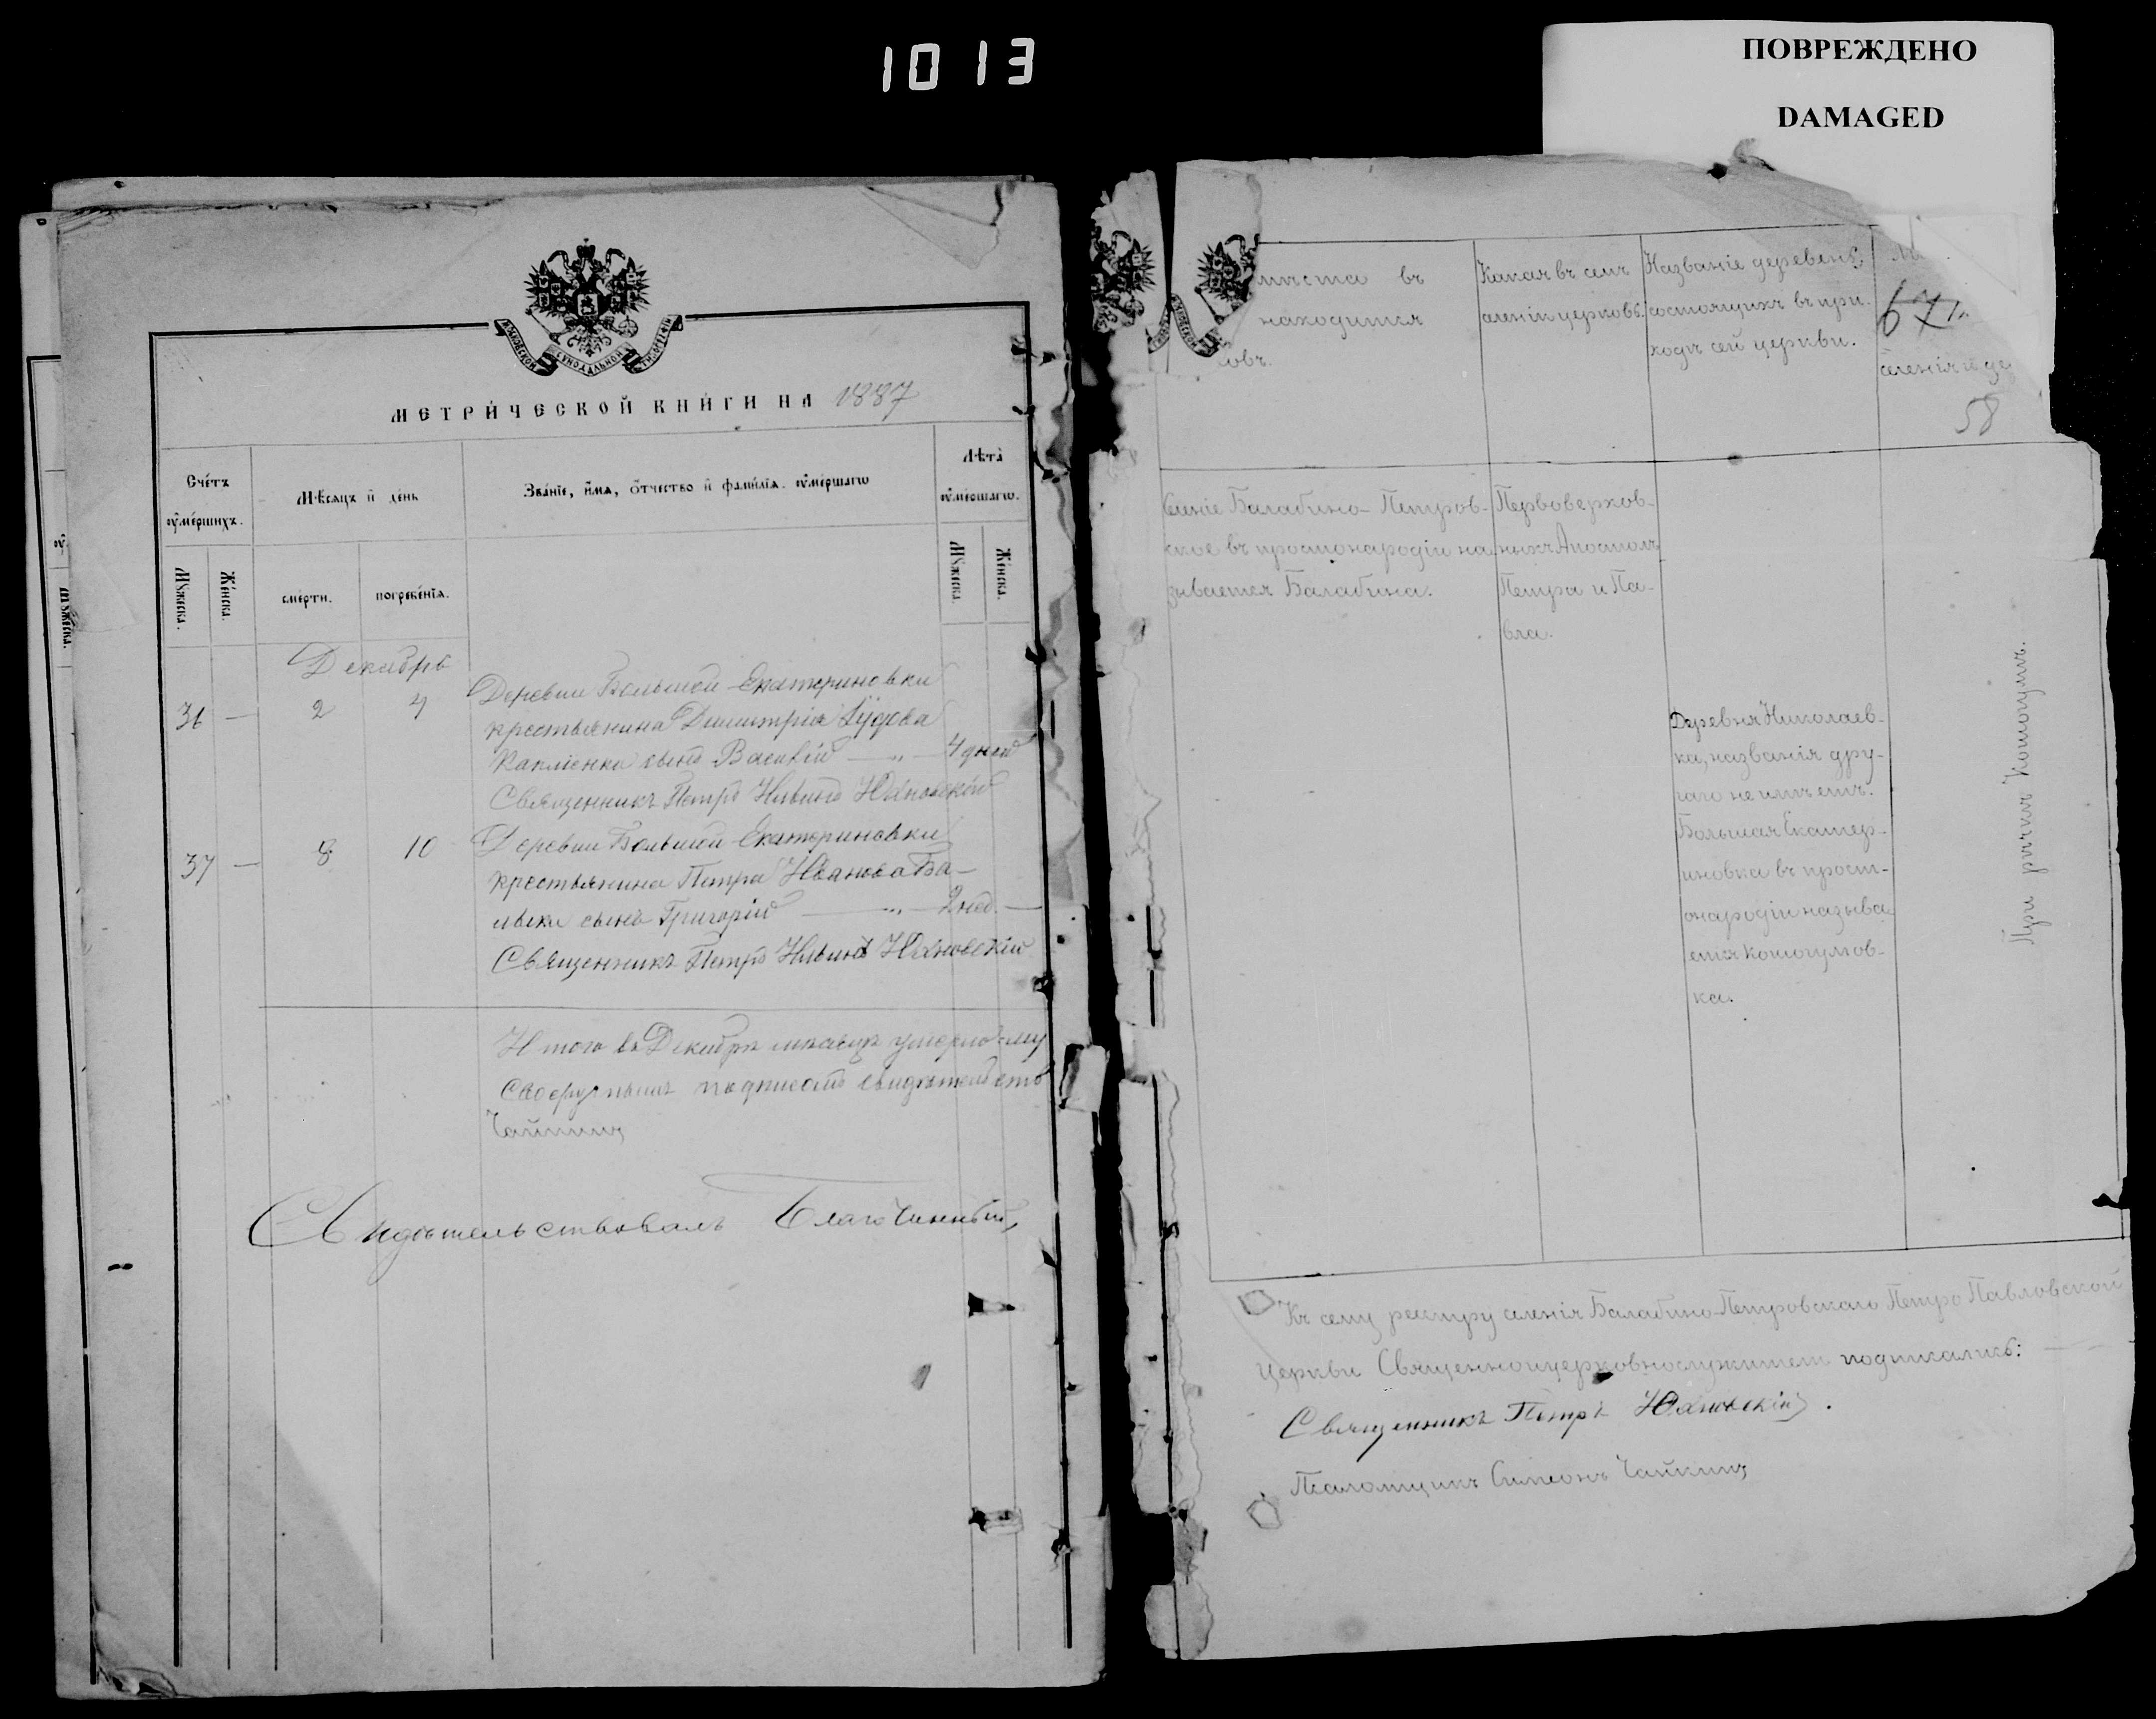 1013
ПОВРЕЖДЕНО
DAMAGED
МЕТРИ́ЧЕСКОЙ КНИ́ГИ НА 1887
Сче́тъ ᲂу҆ме́ршихъ.
Мѣ́сяцъ и҆ де́нь
Зва́нїе, и҆́мѧ, ѻ҆́тчество и҆ фами́лїѧ. ᲂу҆ме́ршагѡ
Лѣ́та ᲂу҆ме́ршагѡ.
Мꙋ́жеска.
Же́нска.
сме́рти.
погребе́нїѧ.
Мꙋ́жеска.
Же́нска.
Декабрь
36 — 2 4 Деревни Большой-Екатериновки
крестьянина Димитрія
сынъ Василій — „ — 4 дней
Священникъ Петръ Юхновскій
37 — 8 10 Деревни Большой-Екатериновки
крестьянина Петра Иванова Ба-
сынъ Григорій — „ — 2 нед. —
Священникъ Петръ Юхновскій
Итого въ Декабрѣ мѣсяцѣ умерло
подписомъ
Чайкинъ
Свидѣтельствовалъ Благочинный,
мѣста въ
находится
овъ.
Какая въ семъ
селеніи церковь.
Названіе деревень,
состоящихъ въ при-
ходѣ сей церкви.
67
селенія и де
58
Селеніе Балабино-Петров-
ское въ простонародіи на-
зывается Балабина.
Первоверхов-
ныхъ Апостолъ
Петра и Па-
вла.
Деревня Николаев-
ка, названія дру-
гаго не имѣетъ.
Большая Екатер-
иновка въ прост-
онародіи называ
ется Кошогумов-
ка.
При рѣчкѣ Кошогумъ.
Къ сему реестру селенія Балабино-Петровскаго Петро Павловской
церкви Священноцерковнослужители подписались:
Священникъ Петръ Юхновскій.
Псаломщикъ Симеонъ Чайкинъ